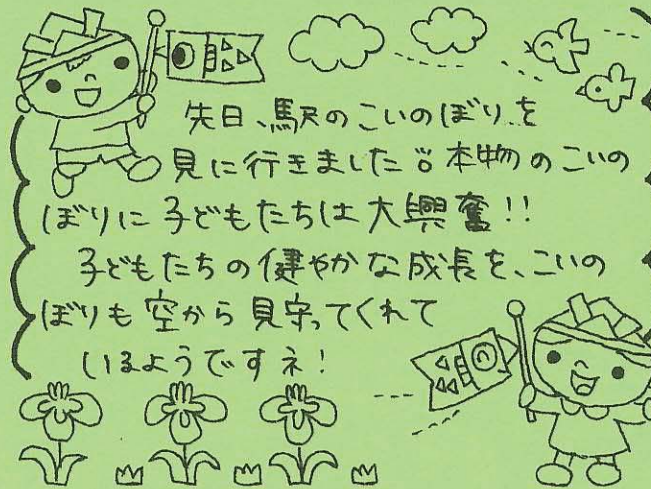 先日、駅のこいのぼりを
見に行きました。本物のこいの
ぼりに子どもたちは大興奮!!
子どもたちの健やかな成長を、こいの
ぼりも空から見守ってくれて
いるようですネ!